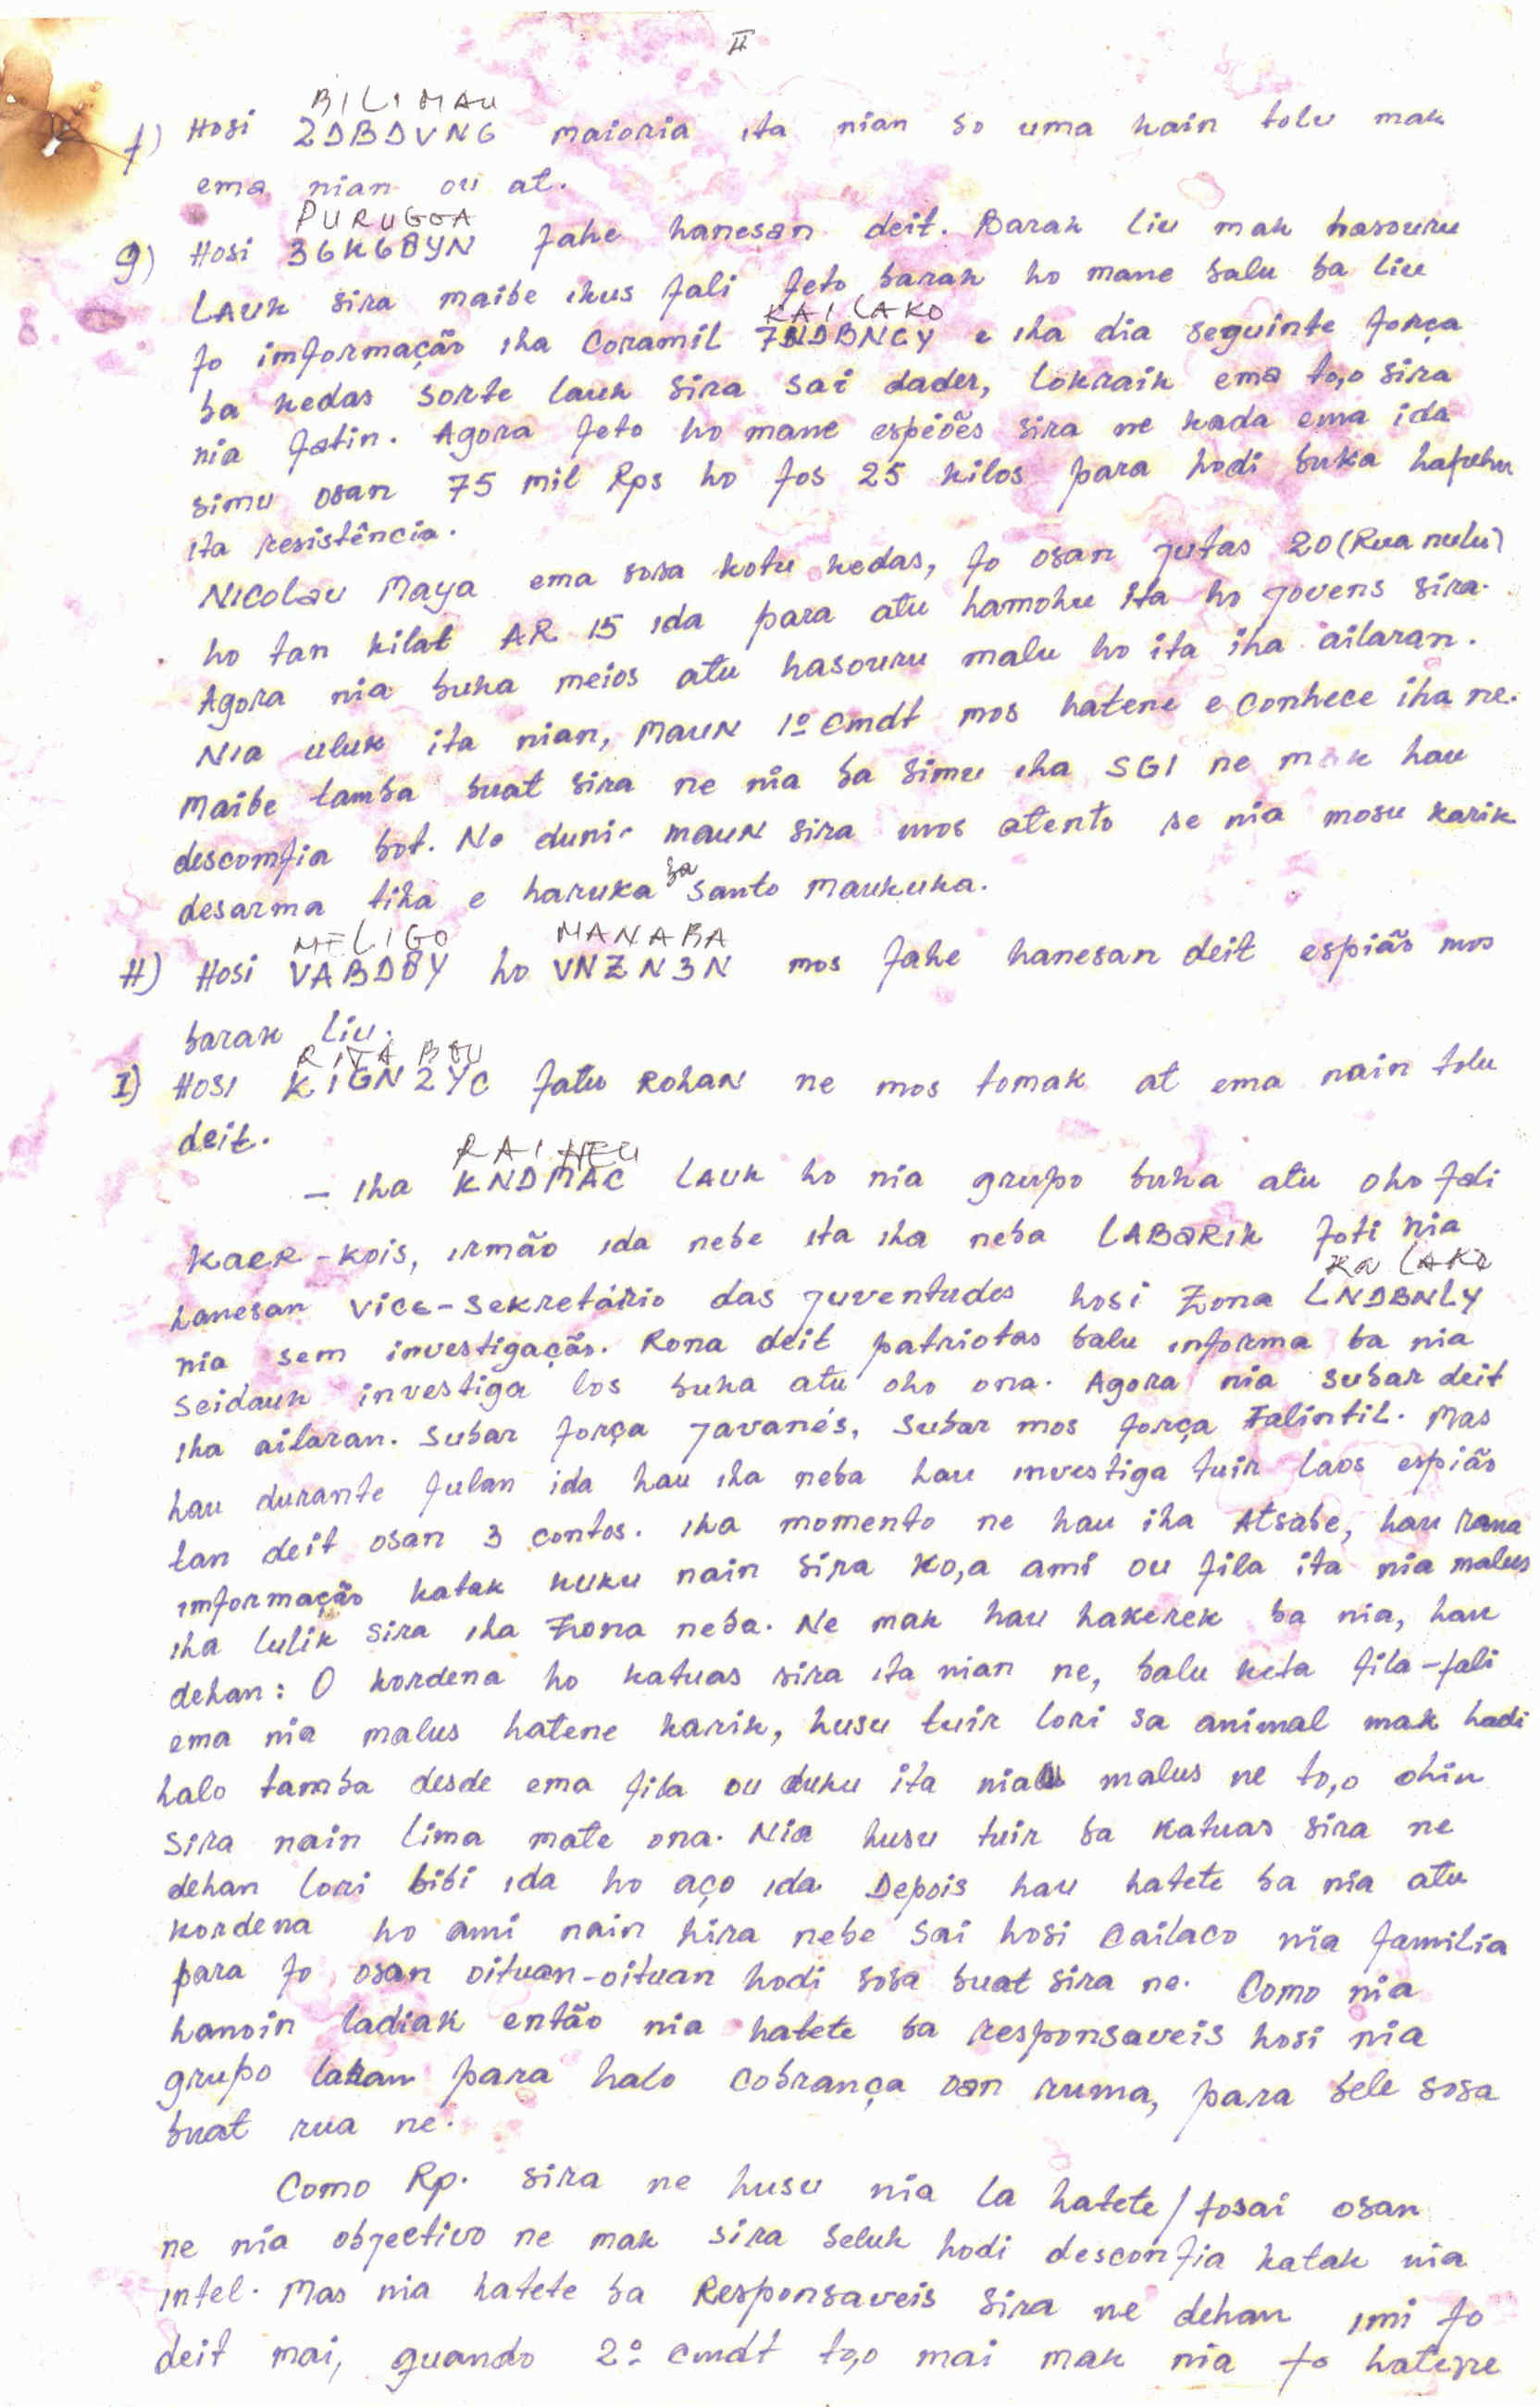 II
BILIMAU
f) Hosi 2DBDVNG maioria ita nian so uma kain tolu mak
ema nian ou at.
PURUGOA
g) Hosi 36K6BYN fahe hanesan deit. Barak liu mak hasouru
LAUK sira maibe ikus fali feto barak ho mane balu ba liu
KAILAKO
fo imformação iha Coramil 7NDBNCY e iha dia seguinte força
ba kedas sorte lauk sira sai dader, lokraik ema to,o sira
nia fatin. Agora feto ho mane espiões sira ne kada ema ida
simu osan 75 mil Rps ho fos 25 kilos para hodi buka hafuhu
ita resistência.
NICOLAU Maya ema sosa kotu kedas, fo osan jutas 20 (Rua nulu)
ho tan kilat AR 15 ida para atu hamohu ita ho jovens sira.
Agora nia buka meios atu hasouru malu ho ita iha ailaran.
NIA uluk ita nian, MAUN 1º Cmdt mos hatene e conhece iha ne.
Maibe tamba buat sira ne nia ba simu iha SGI ne mak hau
descomfia bot. Ne duni maun sira mos atento se nia mosu karik
desarma tiha e haruka ba Santo Maukuka.
MELIGO MANABA
H) Hosi VABDBY ho VNZN3N mos fahe hanesan deit espião mos
barak liu.
RITA BOU
I) Hosi KIGN2YC fatu ROHAN ne mos tomak at ema nain tolu
deit.
RAIHEU
- Iha KNDMAC LAUK ho nia grupo buka atu oho fali
KAER-KOIS, irmão ida nebe ita iha neba LABARIK foti nia
KaLAKO
hanesan Vice-Sekretário das juventudes hosi Zona LNDBNLY
nia sem investigação. Rona deit patriotas balu informa ba nia
seidauk investiga los buka atu oho ona. Agora nia subar deit
iha ailaran. Subar força javanés, Subar mos força Falintil. Mas
hau durante fulan ida hau iha neba hau investiga tuir laos espião
tan deit osan 3 contos. Iha momento ne hau iha Atsabe, hau rona
imformação katak kuku nain sira ko,a ami ou fila ita nia malus
iha lulik sira iha Zona neba. Ne mak hau hakerek ba nia, hau
dehan: O kordena ho katuas sira ita nian ne, balu keta fila-fali
ema nia malus hatene karik, husu tuir lori sa animal mak hodi
halo tamba desde ema fila ou duku ita nia malus ne to,o ohin
sira nain lima mate ona. Nia husu tuir ba katuas sira ne
dehan lori bibi ida ho aço ida. Depois hau hatete ba nia atu
kordena ho ami nain hira nebe sai hosi Cailaco nia familia
para fo osan oituan-oituan hodi sosa buat sira ne. Como nia
hanoin ladiak então nia hatete ba responsaveis hosi nia
grupo laran para halo cobrança osan ruma, para bele sosa
buat rua ne.
Como Rp. sira ne husu nia la hatete/fosai osan
ne nia objectivo ne mak sira seluk hodi desconfia katak nia
intel. Mas nia hatete ba Responsaveis sira ne dehan imi fo
deit mai, quando 2º cmdt to,o mai mak nia fo hatene